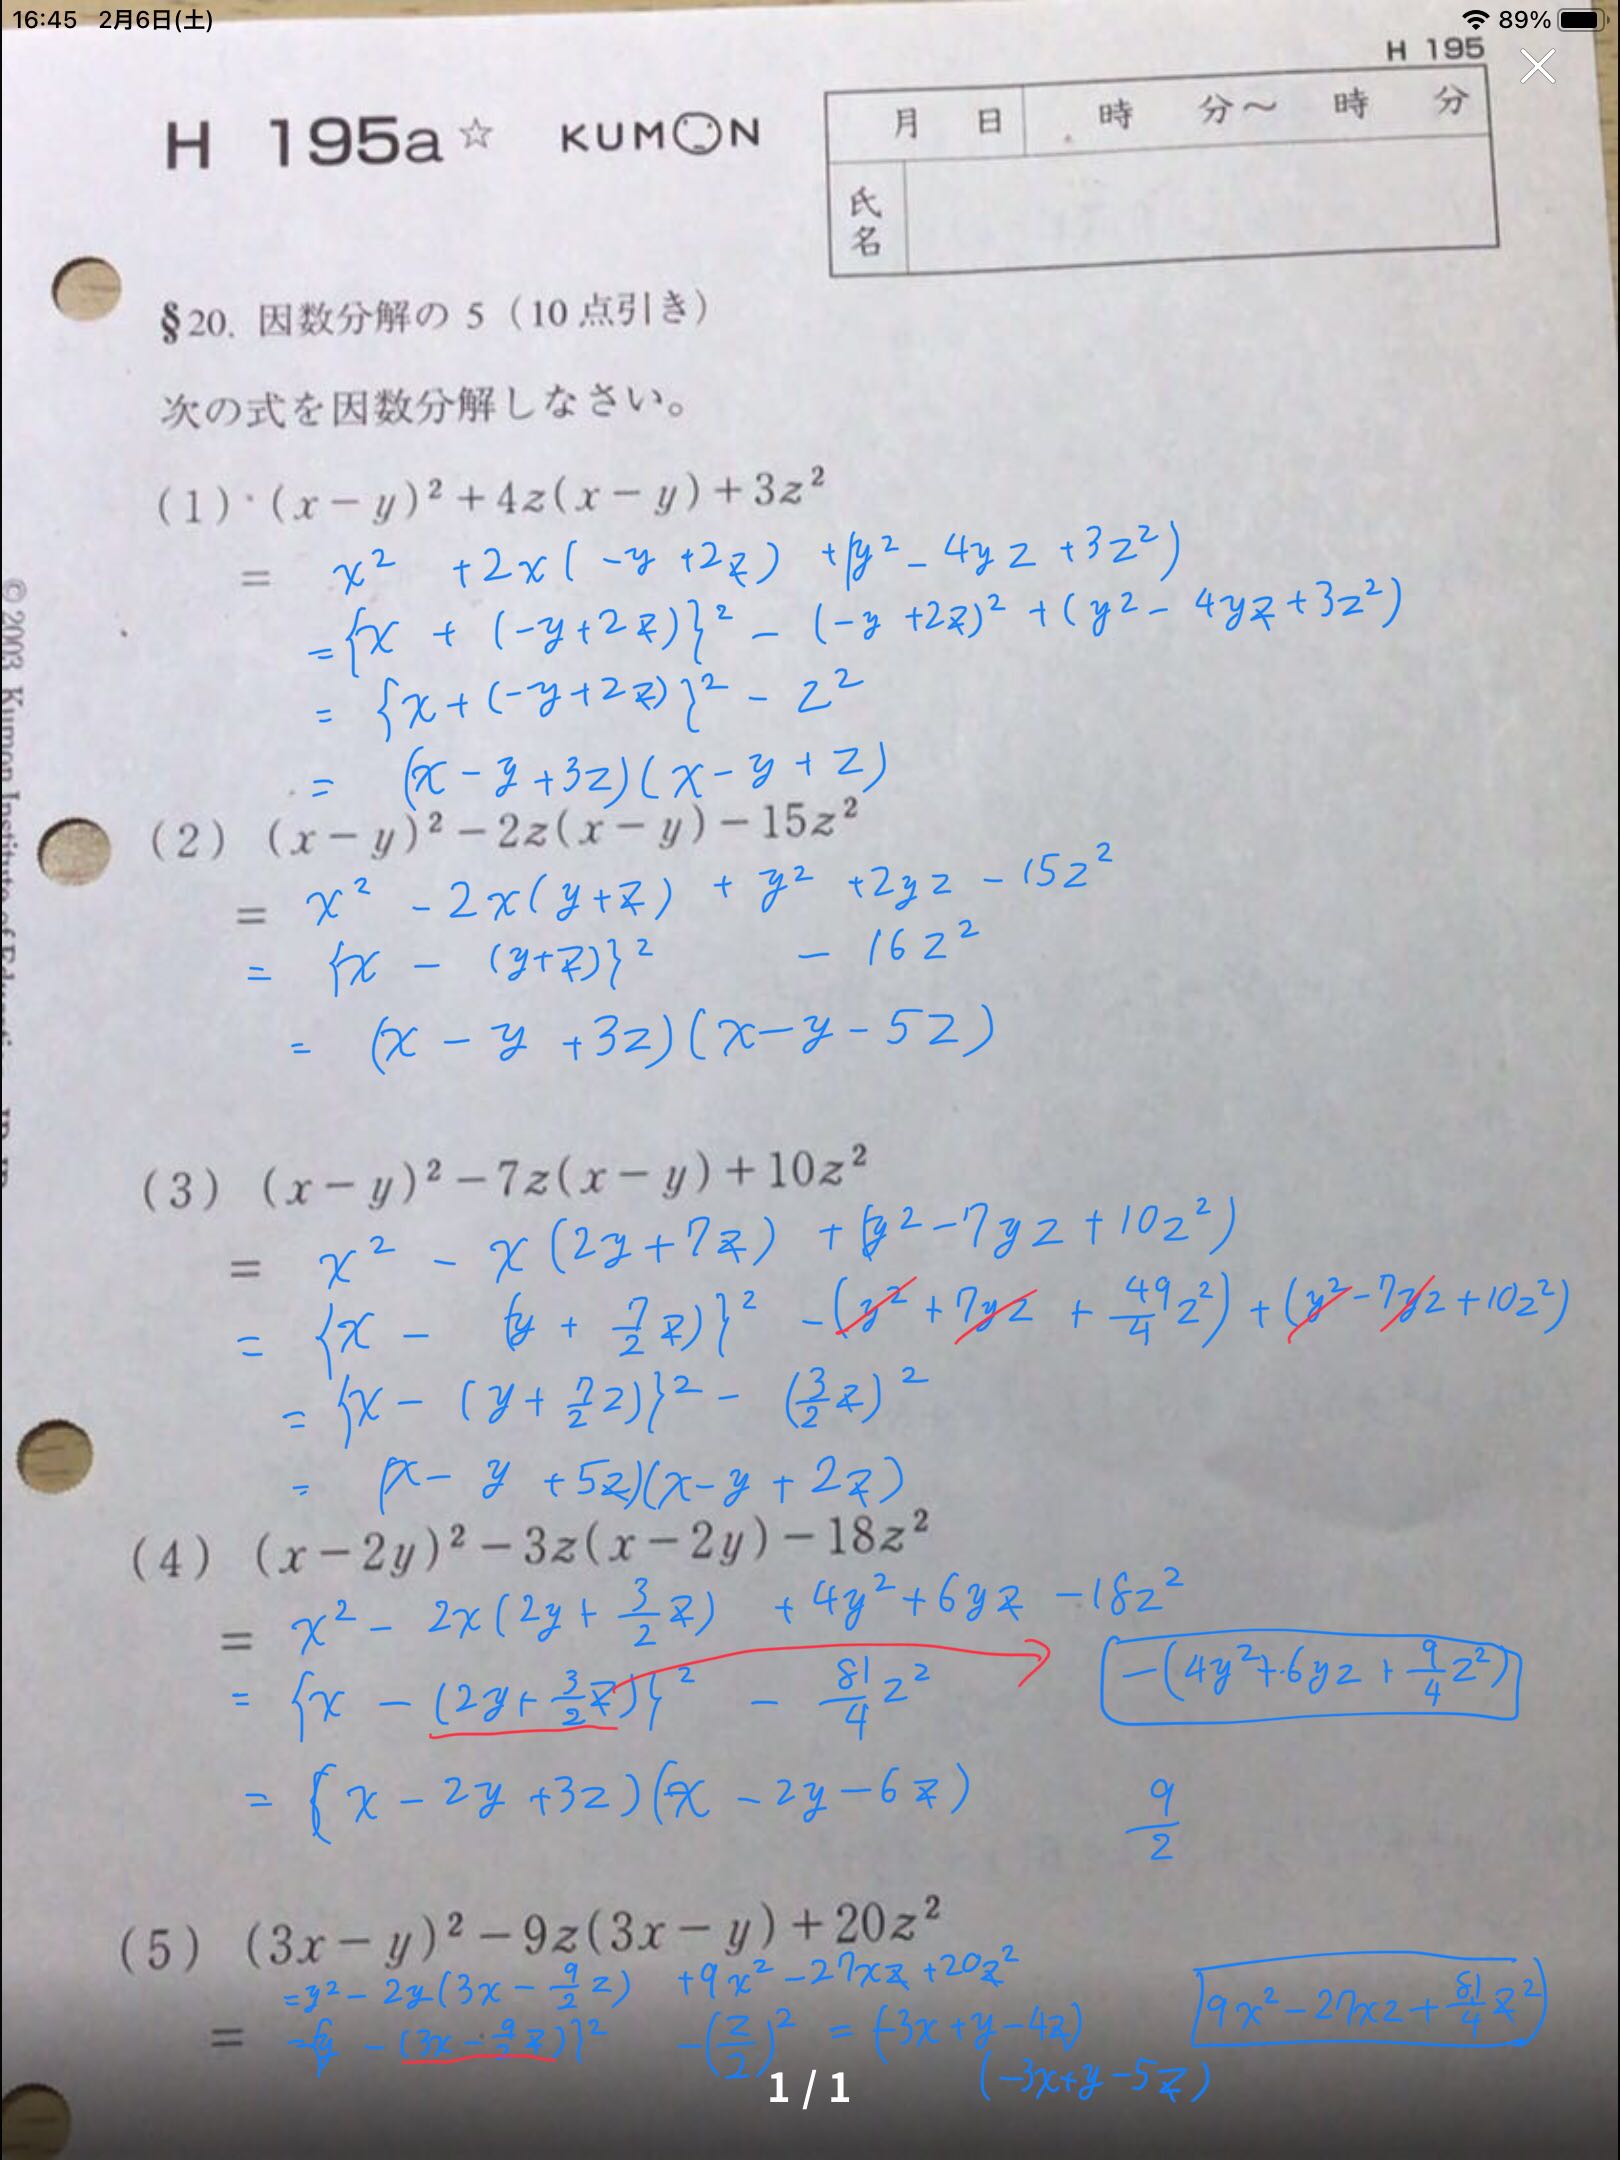 16:45 2月6日(土) 89%
H 195
H 195a☆ KUMON
月 日 時 分〜 時 分
氏名
§20. 因数分解の 5（10 点引き）
次の式を因数分解しなさい。
(1) (x－y)²＋4z(x－y)＋3z²
= x² +2x(-y+2z) +(y²-4yz+3z²)
={x+(-y+2z)}² - (-y+2z)² + (y²-4yz+3z²)
= {x+(-y+2z)}² - z²
= (x-y+3z)(x-y+z)
(2) (x－y)²－2z(x－y)－15z²
= x² -2x(y+z) + y² +2yz -15z²
= {x - (y+z)}² - 16z²
= (x-y+3z)(x-y-5z)
(3) (x－y)²－7z(x－y)＋10z²
= x² - x(2y+7z) +(y²-7yz+10z²)
= {x - (y+7/2z)}² -(y²+7yz+49/4z²)+(y²-7yz+10z²)
= {x-(y+7/2z)}² - (3/2z)²
= (x-y+5z)(x-y+2z)
(4) (x－2y)²－3z(x－2y)－18z²
= x² - 2x(2y+3/2z) +4y²+6yz -18z²
= {x - (2y+3/2z)}² - 81/4z² -(4y²+6yz+9/4z²)
= {x-2y+3z)(x-2y-6z) 9/2
(5) (3x－y)²－9z(3x－y)＋20z²
=y²-2y(3x-9/2z) +9x²-27xz+20z² 9x²-27xz+81/4z²
= ={y-(3x-9/2z)}² -(z/2)² = (-3x+y-4z)
(-3x+y-5z)
1 / 1
© 2003 Kumon Institute of